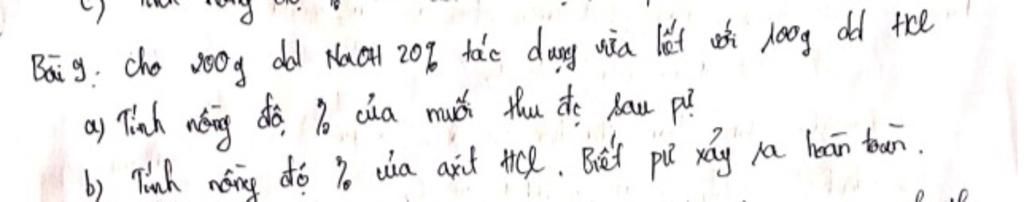 Bài 9: cho 200g dd NaOH 20% tác dụng vừa hết với 100g dd HCl
a) Tính nồng độ % của muối thu đc sau pư?
b) Tính nồng độ % của axit HCl. Biết pư xảy ra hoàn toàn.